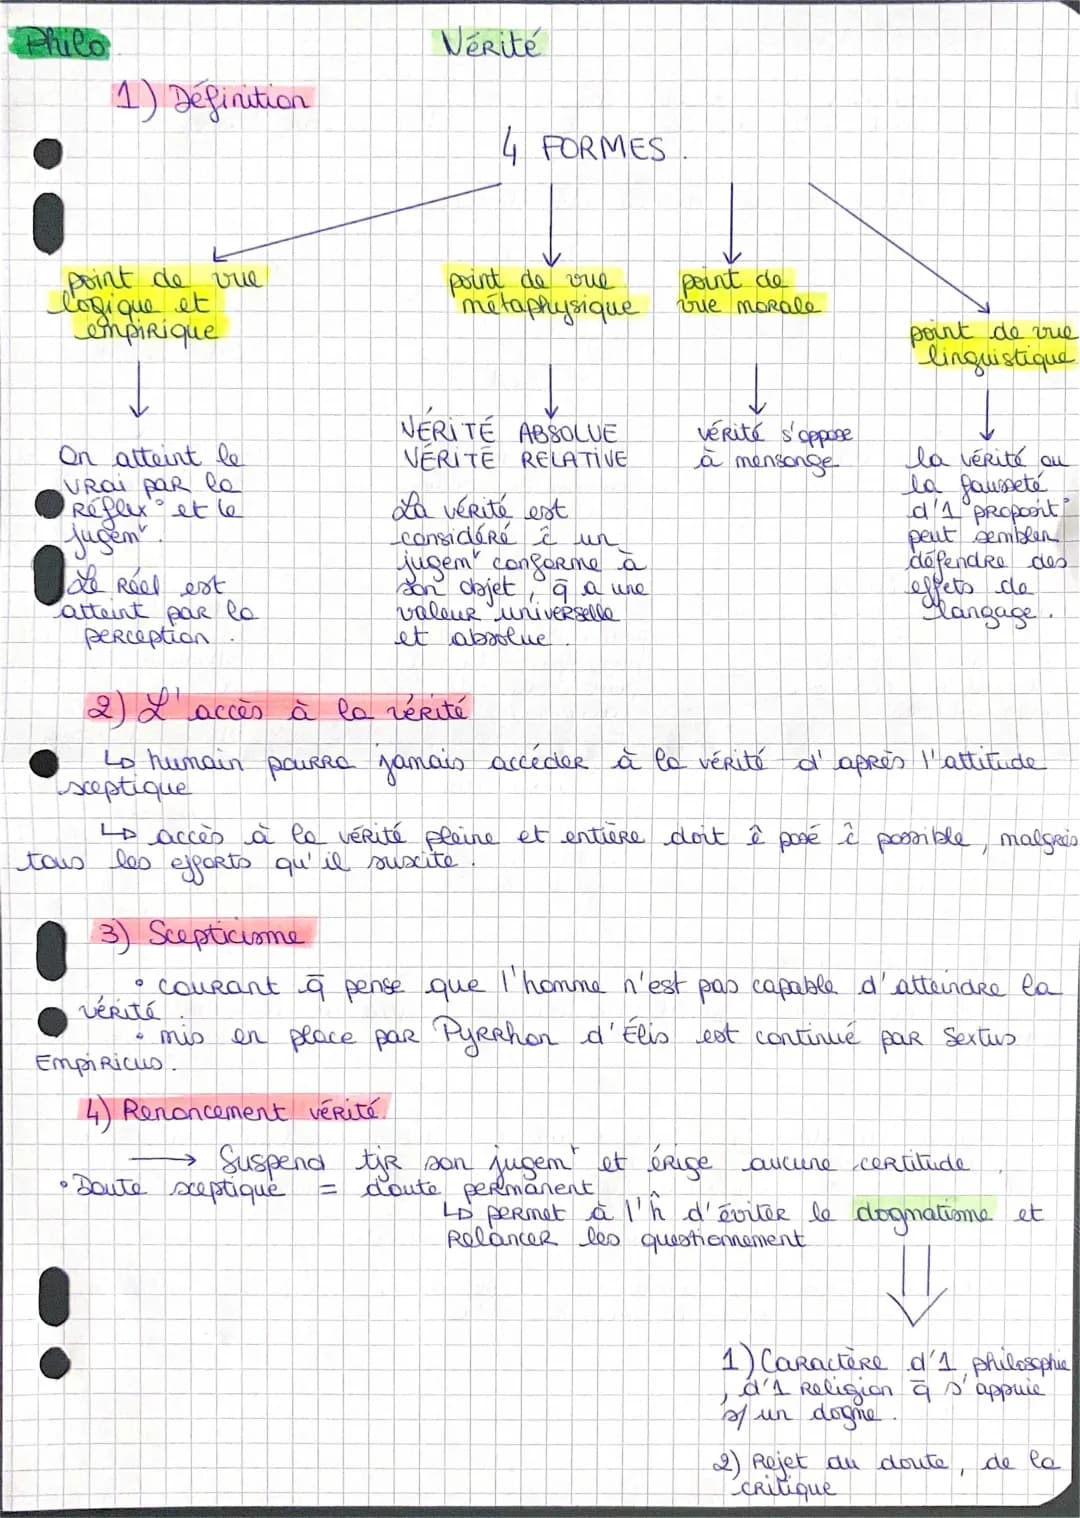 Philo
Vérité
1) Définition
4 FORMES.
point de vue
logique et
empirique
point de vue
métaphysique
point de
vue morale
point de vue
linguistique
On atteint le
vrai par la
réflex° et le
jugemt.
Le Réel est
atteint par la
perception.
VÉRITÉ ABSOLUE
VÉRITÉ RELATIVE
La vérité est
considéré ĉ un
jugemt conforme à
son objet, q̄ a une
valeur universelle
et absolue.
vérité s'oppose
à mensonge
la vérité ou
la fausseté
d'1 proposit°
peut sembler
défendre des
effets de
langage.
2) L'accès à la vérité
↳ humain pourra jamais accéder à la vérité d'après l'attitude
sceptique
↳ accès à la vérité pleine et entière doit ê posé ĉ possible, malgrés
tous les efforts qu'il suscite.
3) Scepticisme
• courant q̄ pense que l'homme n'est pas capable d'atteindre la
vérité.
• mis en place par Pyrrhon d'Élis est continué par Sextus
Empiricus.
4) Renoncement vérité.
→ Suspend tjr son jugemt et érige aucune certitude.
• Doute sceptique = doute permanent
↳ permet à l'ĥ d'éviter le dogmatisme et
relancer les questionnement
1) Caractère d'1 philosophie
, d'1 religion q̄ s'appuie
s/ un dogme.
2) Rejet du doute, de la
critique